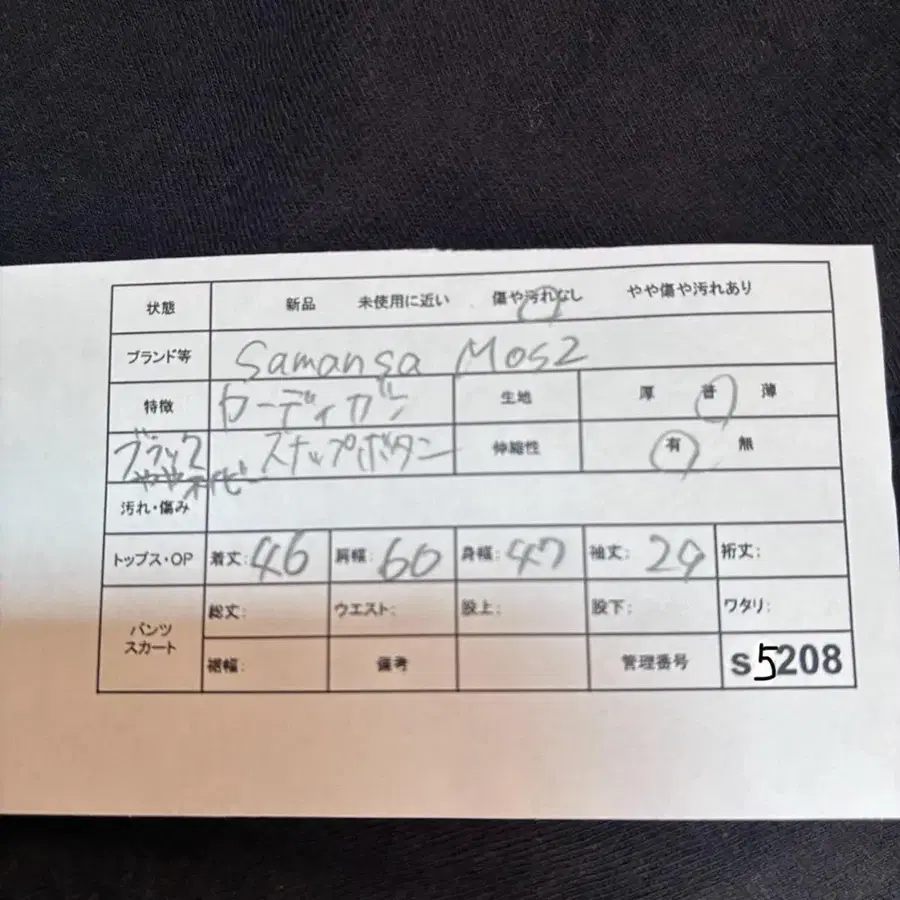 状態 新品 未使用に近い 傷や汚れなし やや傷や汚れあり
ブランド等 Samansa Mos2
特徴 カーディガン 生地 厚 普 薄
ブラック スナップボタン 伸縮性 有 無
やや ネイビー
汚れ・傷み
トップス・OP 着丈: 46 肩幅: 60 身幅: 47 袖丈: 29 裄丈:
パンツ スカート 総丈: ウエスト: 股上: 股下: ワタリ:
裾幅: 備考 管理番号 s5208